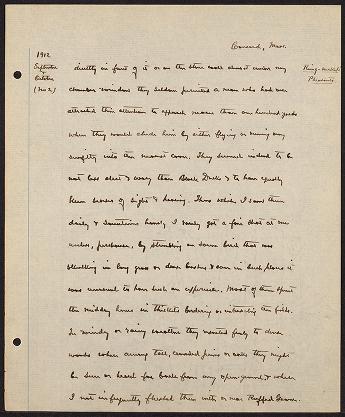 Concord, Mass.
1912
September
October
(No 2)
Ring-necked
Pheasants
directly in front of it or on the stone wall almost under my
chamber windows they seldom permitted a man who had once
attracted their attention to approach nearer than one hundred yards
when they would elude him by either flying or running very
swiftly into the nearest cover. They seemed indeed to be
not less alert & wary than Black Ducks & to have equally
keen senses of sight & hearing. Thus while I saw them
daily & sometimes hourly I rarely got a fair shot at one
unless, perchance, by stumbling on some bird that was
skulking in long grass or dense bushes & even in such places it
was unusual to have such an experience. Most of them spent
the midday hours in thickets bordering or intersecting the fields.
In windy or rainy weather they resorted freely to dense
woods where among tall, crowded pines or oaks they might
be seen or heard far back from any open ground & where
I not infrequently flushed them with or near Ruffed Grouse.